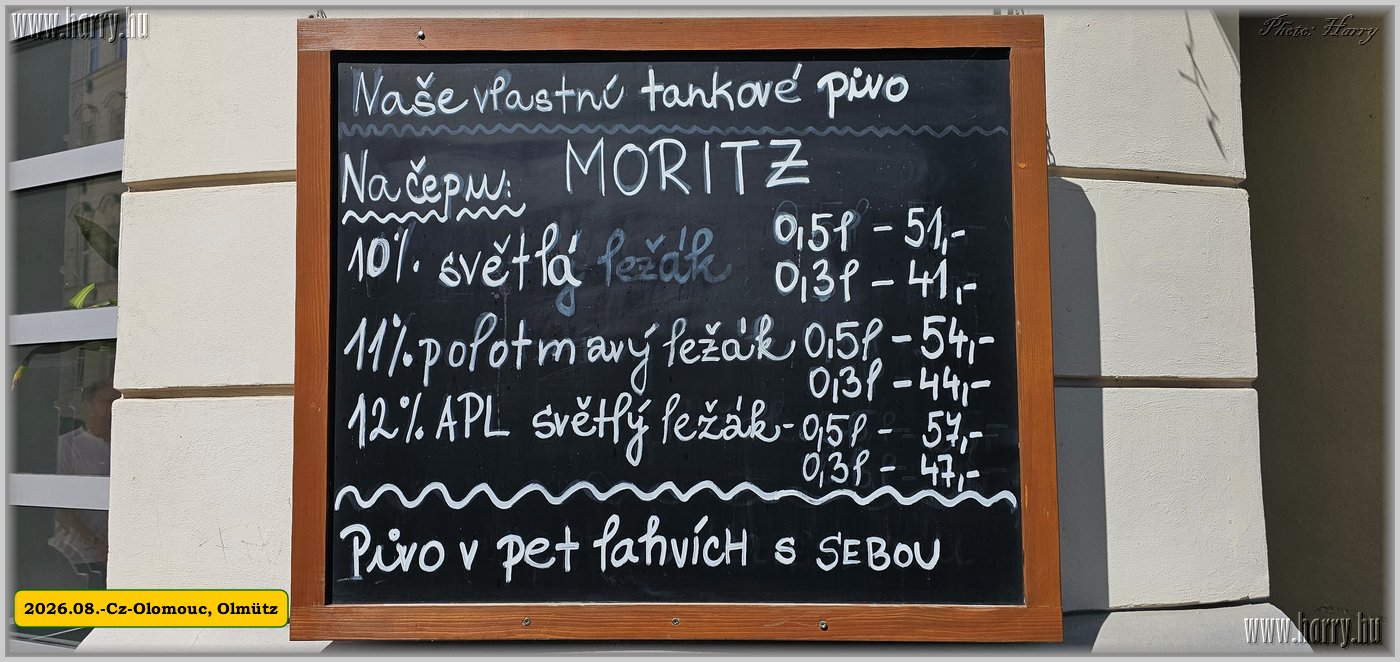 www.harry.hu
Photo: Harry
Naše vlastní tankové pivo
MORITZ
Na čepu:
10% světlá ležák 0,5l - 51,-
0,3l - 41,-
11% polotmavý ležák 0,5l - 54,-
0,3l - 44,-
12% APL světlý ležák - 0,5l - 57,-
0,3l - 47,-
Pivo v pet lahvích s SEBOU
2026.08.-Cz-Olomouc, Olmütz
www.harry.hu